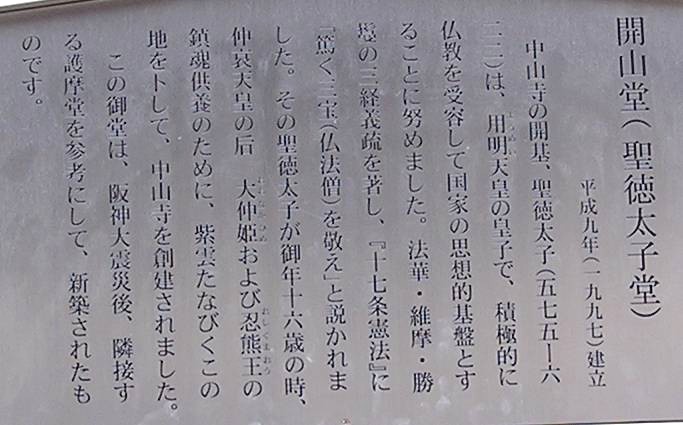 開山堂（聖徳太子堂）
平成九年（一九九七）建立
中山寺の開基、聖徳太子（五七五ー六
二二）は、用明天皇の皇子で、積極的に
仏教を受容して国家の思想的基盤とす
ることに努めました。法華・維摩・勝
鬘の三経義疏を著し、『十七条憲法』に
「篤く三宝（仏法僧）を敬え」と説かれま
した。その聖徳太子が御年十六歳の時、
仲哀天皇の后　大仲姫および忍熊王の
鎮魂供養のために、紫雲たなびくこの
地を卜して、中山寺を創建されました。
この御堂は、阪神大震災後、隣接す
る護摩堂を参考にして、新築されたも
のです。